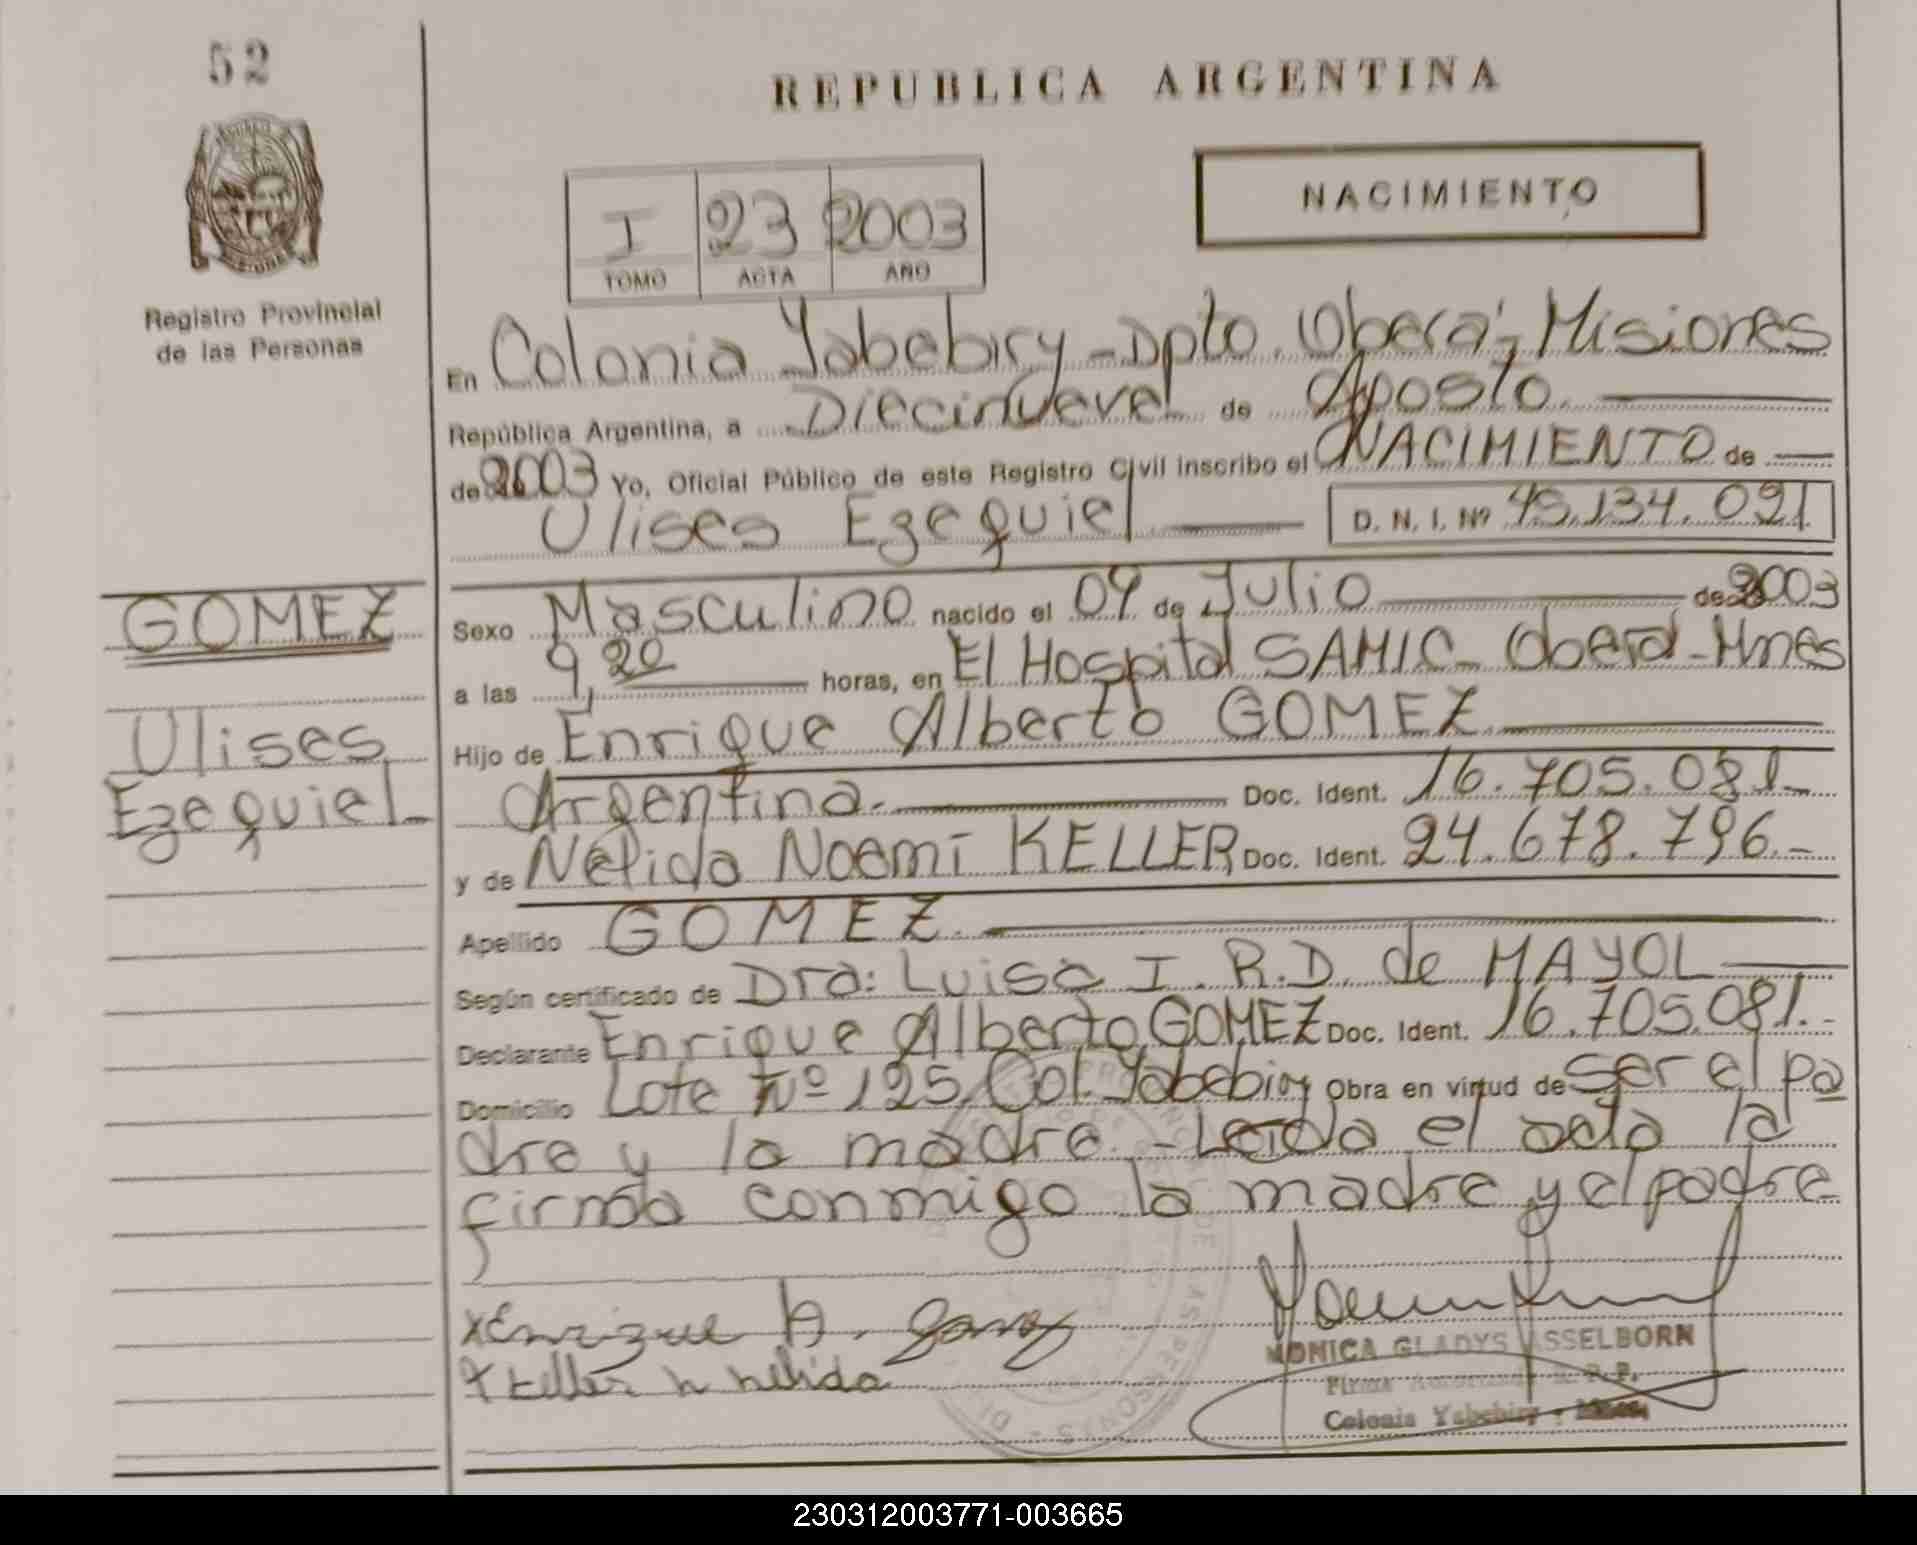 52
REPUBLICA ARGENTINA
NACIMIENTO
I 23 2003
TOMO ACTA AÑO
Registro Provincial
de las Personas
En Colonia Yabebiry - Dpto. Oberá - Misiones
República Argentina, a Diecinueve de Agosto
de 2003 Yo, Oficial Público de este Registro Civil inscribo el NACIMIENTO de
Ulises Ezequiel D. N. I. Nº 45.134.091
GOMEZ
Ulises
Ezequiel-
Sexo Masculino nacido el 09 de Julio de 2003
a las 9,20 horas, en El Hospital SAMIC - Oberá - Mnes
Hijo de Enrique Alberto GOMEZ
Argentina. Doc. Ident. 16.705.081.-
y de Nélida Noemí KELLER Doc. Ident. 24.678.796.-
Apellido GOMEZ.
Según certificado de Dra: Luisa I. R.D. de MAYOL
Declarante Enrique Alberto GOMEZ Doc. Ident. 16.705.081.-
Domicilio Lote Nº 125, Col. Yabebiry Obra en virtud de ser el pa
dre y la madre. - Leida el acta la
firma conmigo la madre y el padre
x Enrique A. Gomez
x Keller n nelida
MONICA GLADYS ASSELBORN
Firma
Colonia Yabebiry -
230312003771-003665